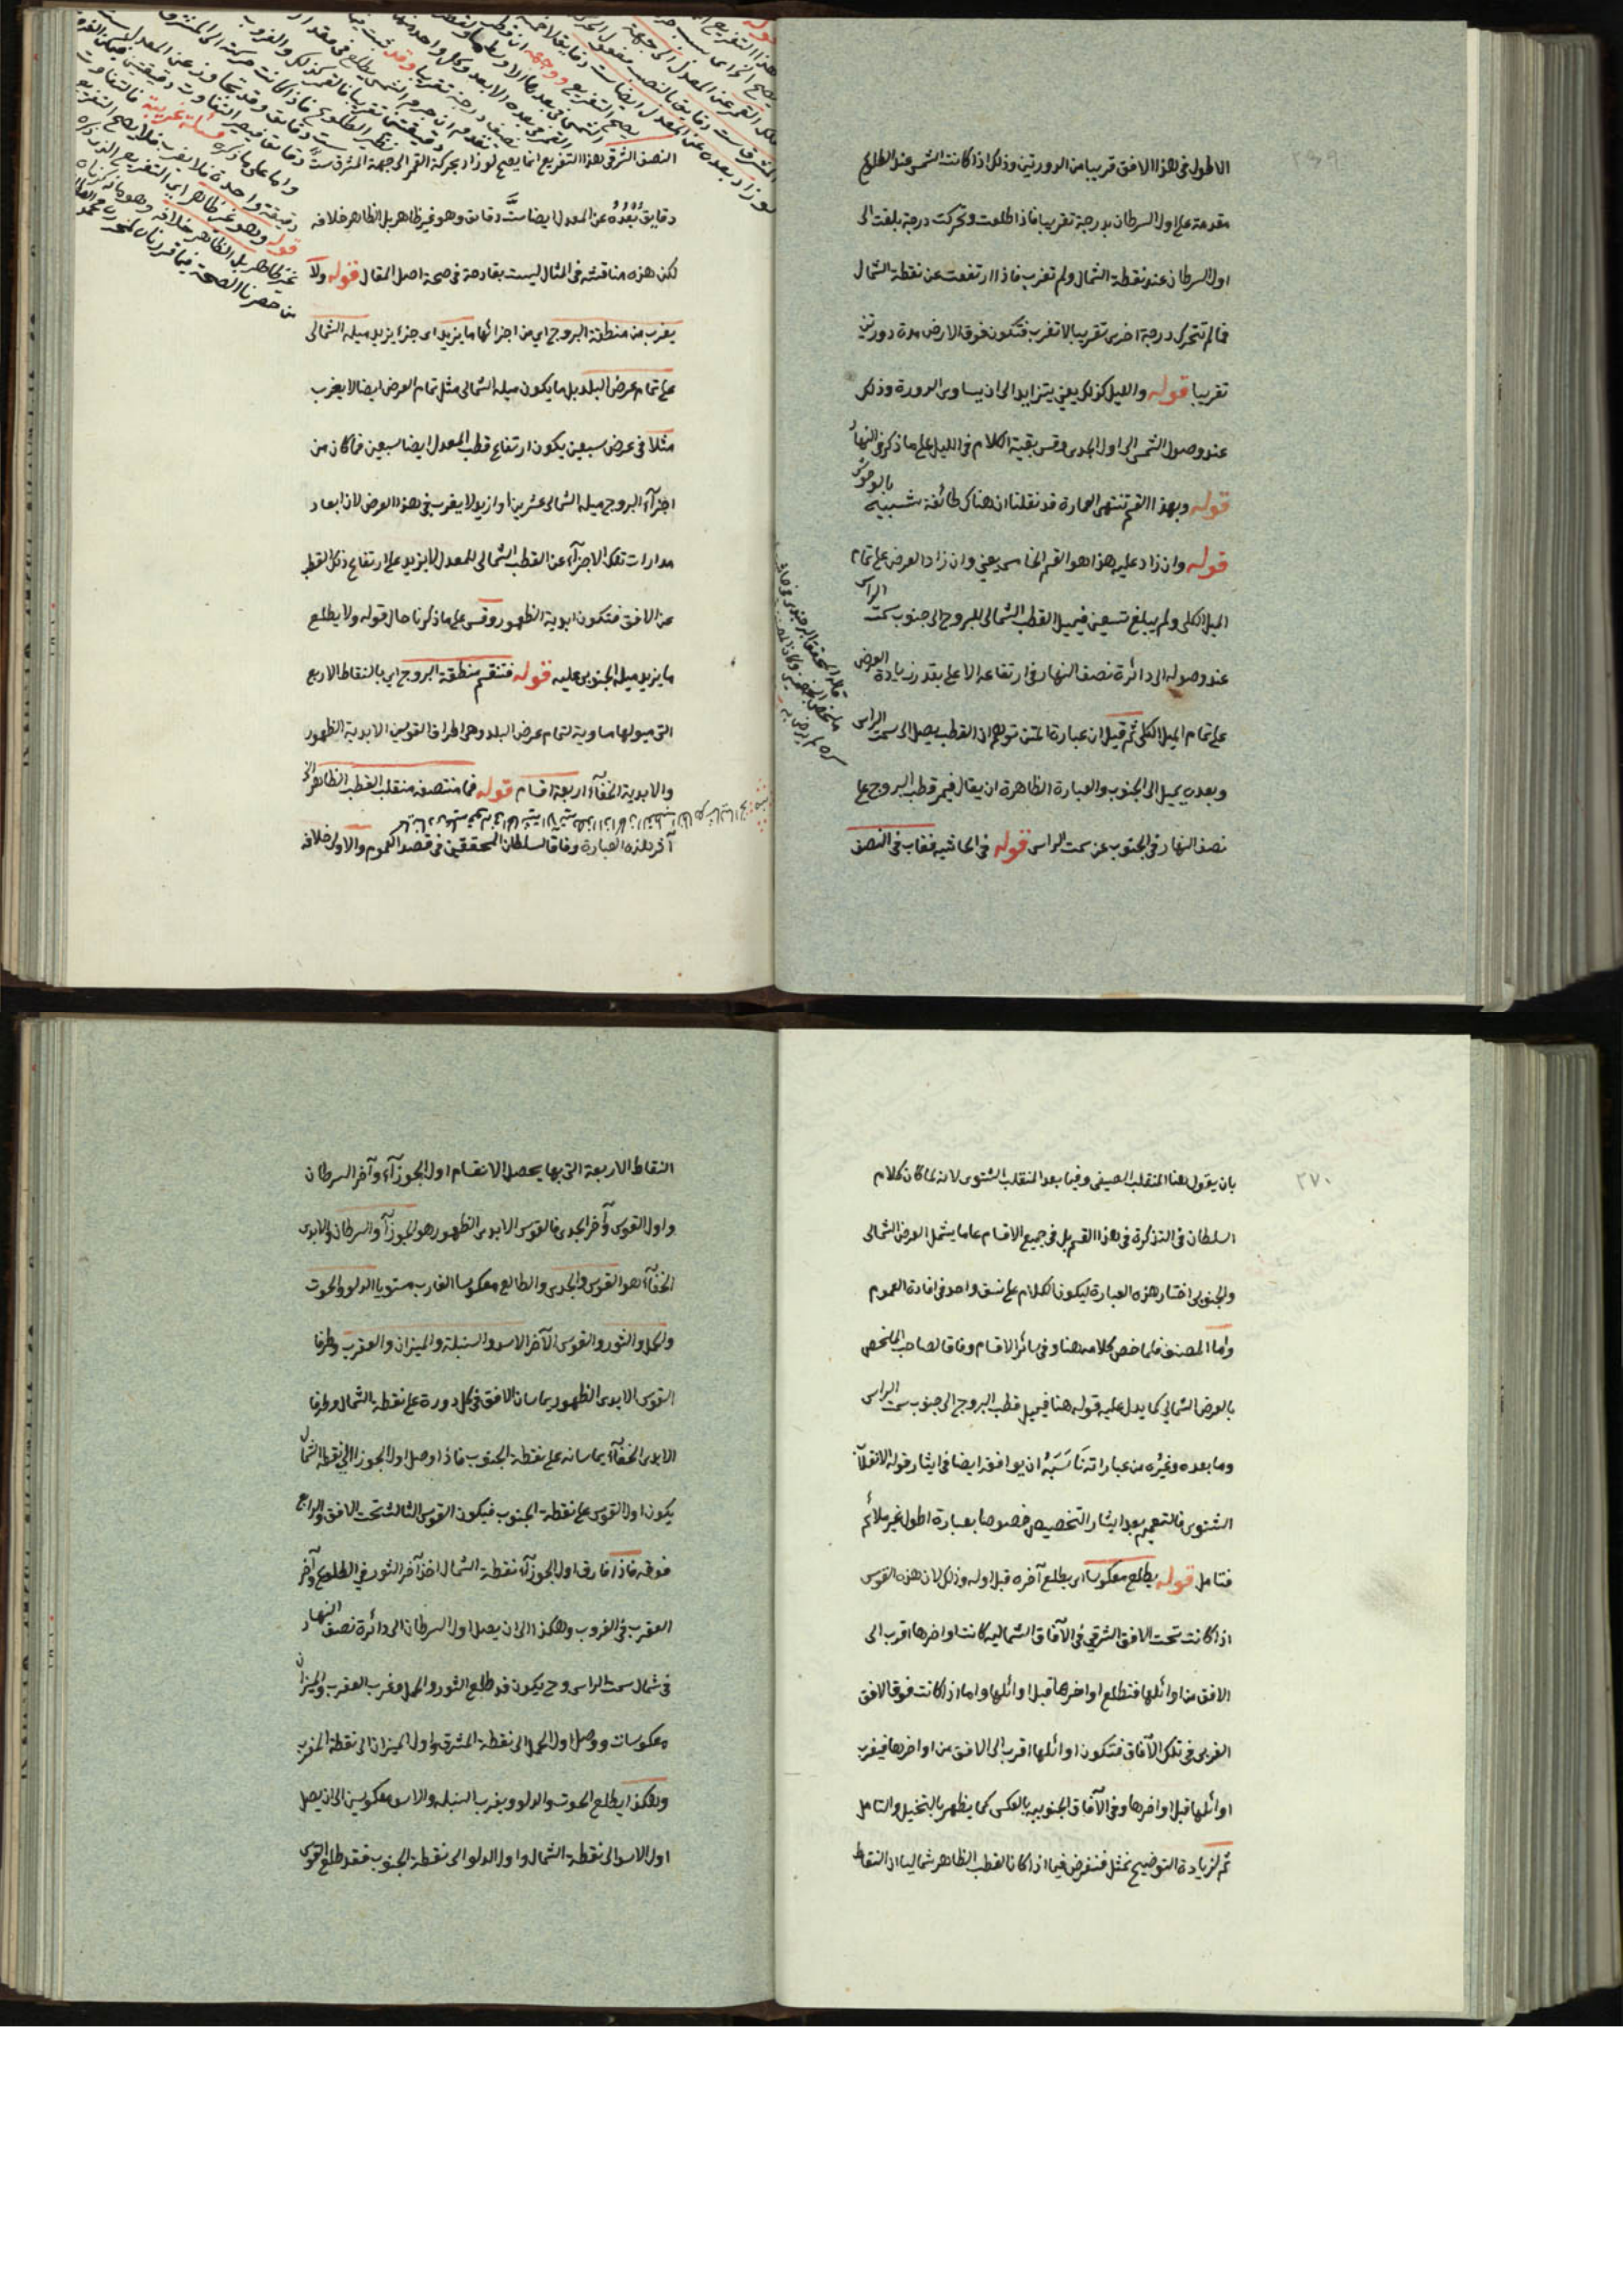 الاطول فى هذا الافق قريبا من الدورتين وذلك اذا كانت الشمس عند الطلوع
مقدمة على اول السرطان بدرجة تقريبا فاذا طلعت وتحركت درجة بلغت الى
اول السرطان عند نقطة الشمال ولم تغرب فاذا ارتفعت عن نقطة الشمال
فمالم تتحرك درجة اخرى تقريبا لا تغرب فتكون فوق الارض مدة دورتين
تقريبا قوله والليل كذلك يعنى يتزايد الى ان يساوى الدورة وذلك
عند وصول الشمس الى اول الجدى وقس بقية الكلام فى الليل على ما ذكر فى النهار
قوله وبهذا القسم تنتهى العمارة قد نقلنا ان هناك طائفة شبيه بالوحوش
قوله وان زاد عليه هذا هو القسم الخامس يعنى وان زاد العرض على تمام
الميل الكلى ولم يبلغ تسعين فيميل القطب الشمالى للبروج الى جنوب سمت الراس
عند وصوله الى دائرة نصف النهار فى ارتفاعه الاعلى بقدر زيادة العرض
على تمام الميل الكلى ثم قيل ان عبارة المتن توهم ان القطب يصل الى سمت الراس
وبعده يميل الى الجنوب والعبارة الظاهرة ان يقال فيمر قطب البروج على
نصف النهار فى الجنوب عن سمت الراس قوله فى الحاشيه فغاب فى النصف
النصف الشرقى هذا التفريع انما يصح لو زاد بحركة القمر الى جهة المشرق ست
دقايق بُعْدُهُ عن المعدل ايضا ستَّ دقايق وهو غير ظاهر بل الظاهر خلافه
لكن هذه مناقشه فى المثال ليست بقادحة فى صحة اصل المقال قوله ولا
يغرب من منطقة البروج اى من اجزائها ما يزيد اى جزء يزيد ميله الشمالى
على تمام عرض البلد بل ما يكون ميله الشمالى مثل تمام العرض ايضا لا يغرب
مثلا فى عرض سبعين يكون ارتفاع قطب المعدل ايضا سبعين فما كان من
اجزآء البروج ميله الشمالى عشرين او ازيد لا يغرب فى هذا العرض لان ابعاد
مدارات تلك الاجزآء عن القطب الشمالى للمعدل لا يزيد على ارتفاع ذلك القطب
عن الافق فتكون ابدية الظهور وقس على ما ذكرنا حال قوله ولا يطلع
ما يزيد ميله الجنوبى عليه قوله فتنقسم منطقة البروج اى بالنقاط الاربع
التى ميولها مساوية لتمام عرض البلد وهى اطراف القوسين الابدية الظهور
والابدية الخفآء اربعة اقسام قوله فما منتصفه منقلب القطب الظاهر الخ
آثر هذه العبارة وفاقا لسلطان المحققين فى قصد العموم والاولى خلافه
٢٧٠
بان يقول هنا المنقلب الصيفى وفيما بعد المنقلب الشتوى لانه لما كان كلام
السلطان فى التذكرة فى هذا القسم بل فى جميع الاقسام عاما يشمل العرض الشمالى
والجنوبى اختار هذه العبارة ليكون الكلام على نسق واحد فى افادة العموم
واما المصنف فلما خص كلامه هنا وفى سائر الاقسام وفاقا لصاحب الملخص
بالعرض الشمالى كما يدل عليه قوله هنا فيميل قطب البروج الى جنوب سمت الراس
وما بعده وغيره من عباراته نَاسَبَهُ ان يوافقه ايضا فى ايثار قوله الانقلاب
الشتوى فالتعميم بعد ايثار التخصيص خصوصا بعبارة اطول غير ملائم
فتامل قوله يطلع معكوسا اى يطلع آخره قبل اوله وذلك لان هذه القوس
اذا كانت تحت الافق الشرقى فى الآفاق الشماليه كانت اواخرها اقرب الى
الافق من اوائلها فتطلع اواخرها قبل اوائلها واما اذا كانت فوق الافق
الغربى فى تلك الآفاق فتكون اوائلها اقرب الى الافق من اواخرها فيغرب
اوائلها قبل اواخرها وفى الآفاق الجنوبيه بالعكس كما يظهر بالتخيل والتامل
ثم لزيادة التوضيح نمثل فنفرض فيما اذا كان القطب الظاهر شماليا ان النقاط
النقاط الاربعة التى بها يحصل الانقسام اول الجوزآء وآخر السرطان
واول القوس وآخر الجدى فالقوس الابدى الظهور هو الجوزآ والسرطان والابدى
الخفآء هو القوس والجدى والطالع معكوسا الغارب مستويا الدلو والحوت
والحمل والثور والقوس الآخر الاسد والسنبلة والميزان والعقرب وطرفا
القوس الابدى الظهور يماسان الافق فى كل دورة على نقطة الشمال وطرفا
الابدى الخفآء يماسانه على نقطة الجنوب فاذا وصل اول الجوزا الى نقطة الشمال
يكون اول القوس على نقطة الجنوب فيكون القوس الثالث تحت الافق والرابع
فوقه فاذا فارق اول الجوزآء نقطة الشمال اخذ آخر الثور فى الطلوع وآخر
العقرب فى الغروب وهكذا الى ان يصل اول السرطان الى دائرة نصف النهار
فى شمال سمت الراس وح يكون قد طلع الثور والحمل وغرب العقرب والميزان
معكوسات ووصل اول الحمل الى نقطة المشرق واول الميزان الى نقطة المغرب
وهكذا يطلع الحوت والدلو ويغرب السنبله والاسد معكوسين الى ان يصل
اول الاسد الى نقطة الشمال واول الدلو الى نقطة الجنوب فقد طلع القوس